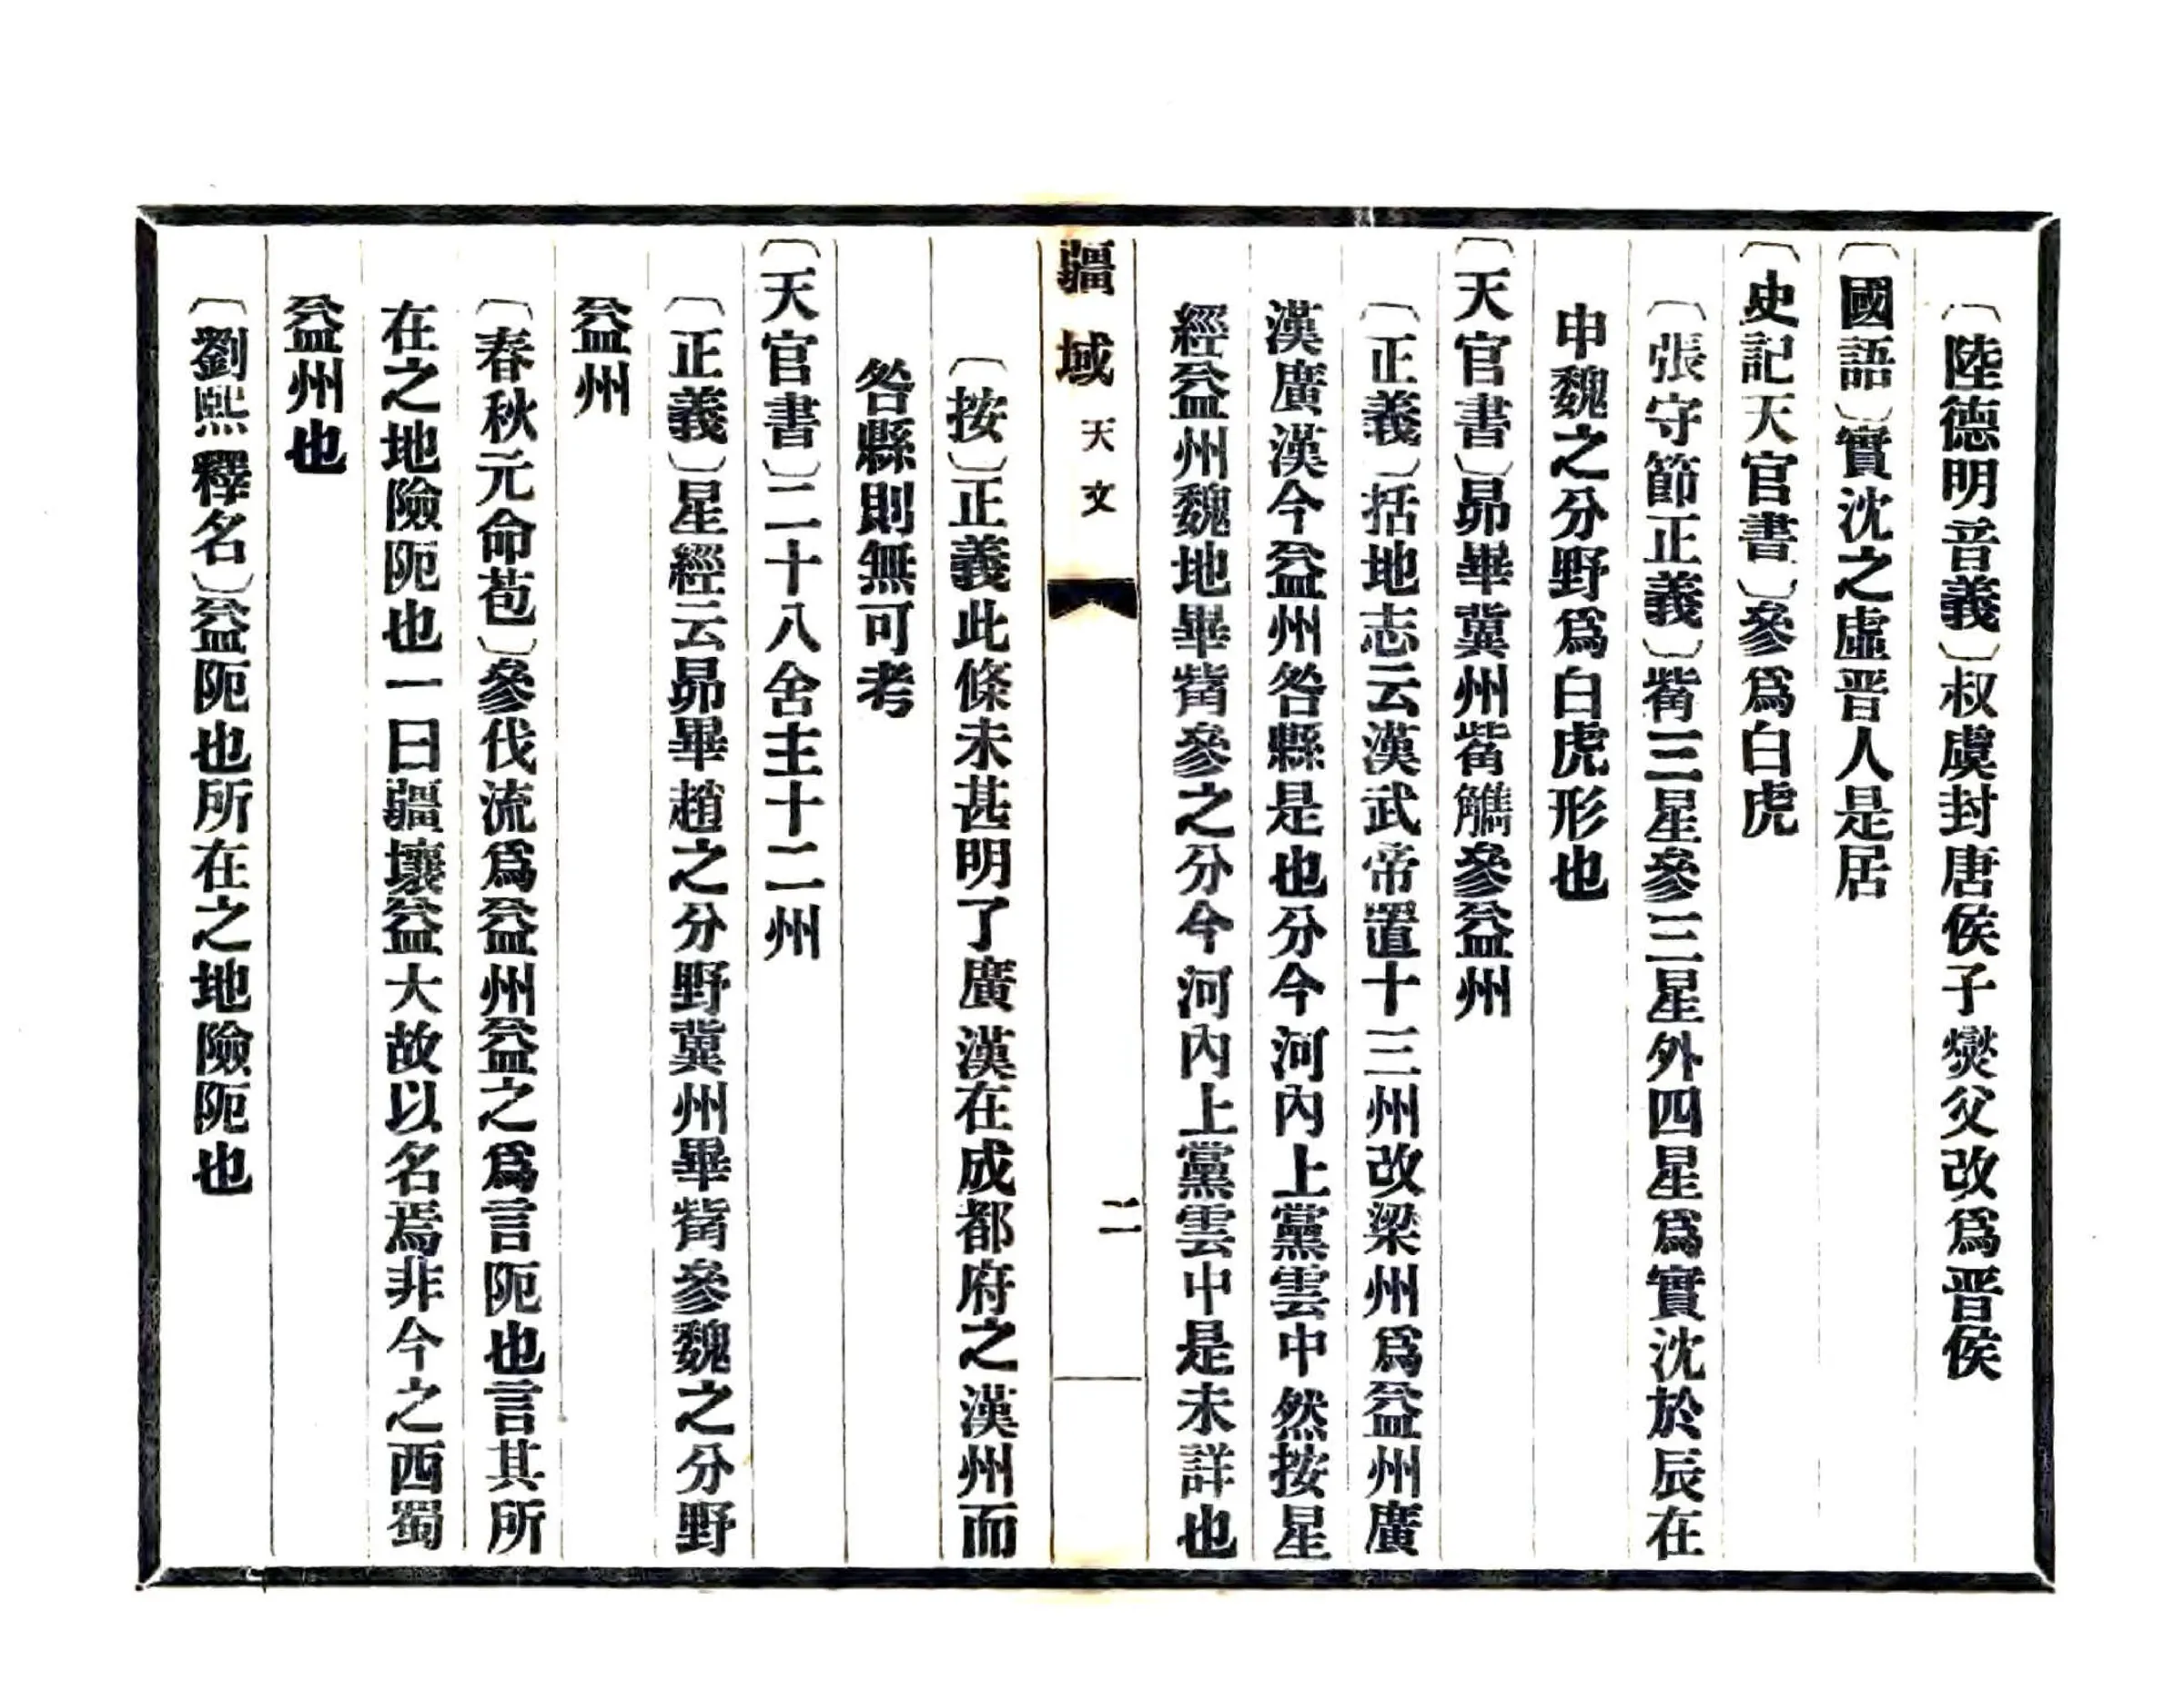 〔陸德明音義〕叔虞封唐侯子爕父改爲晋侯
〔國語〕實沈之虛晋人是居
〔史記天官書〕參爲白虎
〔張守節正義〕觜三星參三星外四星爲實沈於辰在
申魏之分野爲白虎形也
〔天官書〕昴畢冀州觜觹參益州
〔正義〕括地志云漢武帝置十三州改梁州爲益州廣
漢廣漢今益州咎縣是也分今河內上黨雲中然按星
經益州魏地畢觜參之分今河內上黨雲中是未詳也
疆域 天文 二
〔按〕正義此條未甚明了廣漢在成都府之漢州而
咎縣則無可考
〔天官書〕二十八舍主十二州
〔正義〕星經云昴畢趙之分野冀州畢觜參魏之分野
益州
〔春秋元命苞〕參伐流爲益州益之爲言阨也言其所
在之地險阨也一曰疆壤益大故以名焉非今之西蜀
益州也
〔劉熙釋名〕益阨也所在之地險阨也